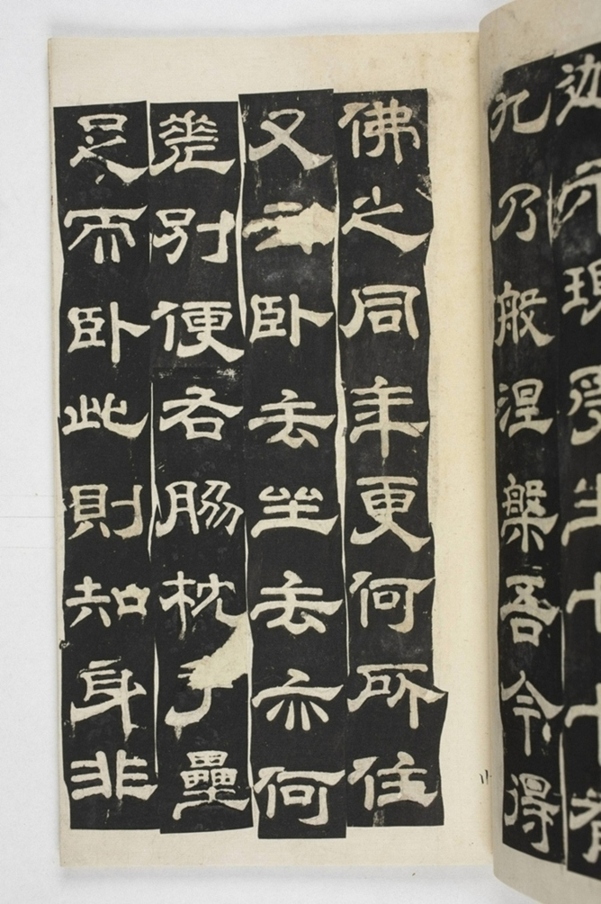 迦示現受生七十有
九乃般涅槃吾今得
佛之同年更何所住
又云卧去坐去亦何
差別便右脇枕手壘
足而卧此則知身非